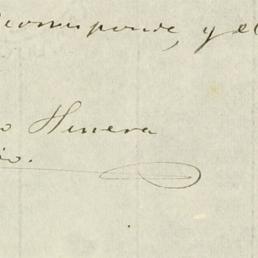 corresponde, y el
o Herrera
io.